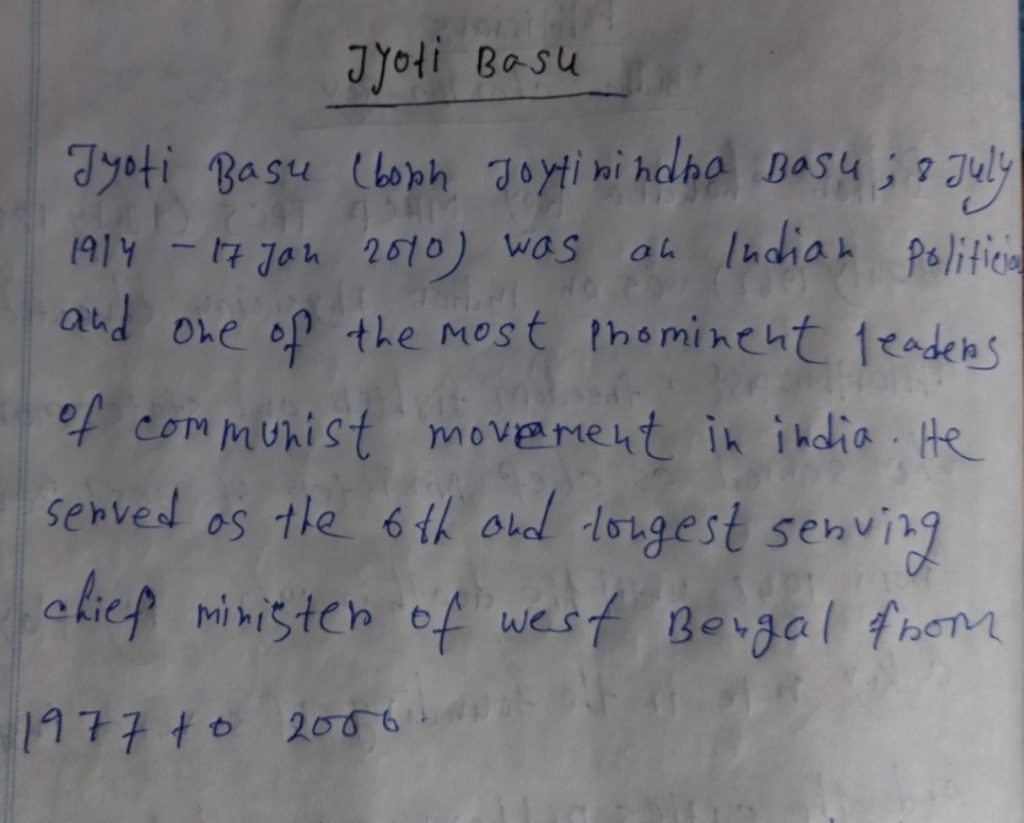 Jyoti Basu
Jyoti Basu (born Joytirindra Basu; 8 July
1914 - 17 Jan 2010) was an Indian Politicia
and one of the most prominent leaders
of communist movement in india. He
served as the 6th and longest serving
chief minister of west Bengal from
1977 to 2000